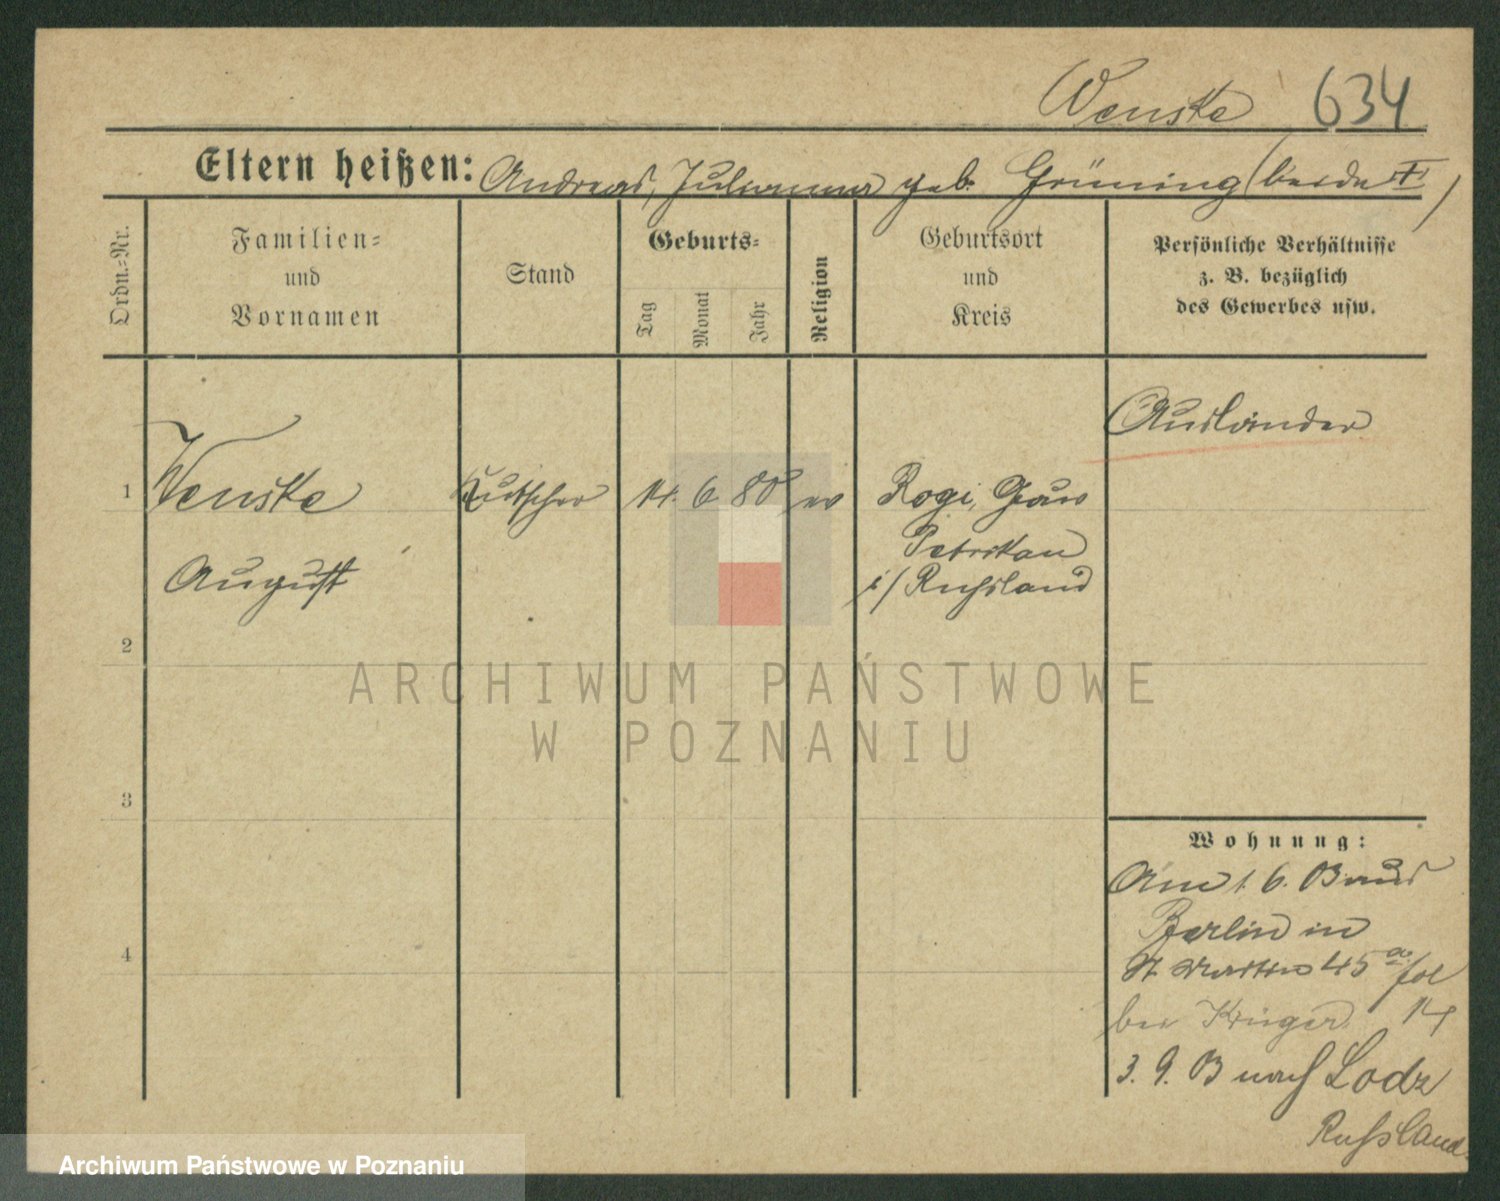 Wenske 634
Eltern heißen: Andreas, Julianna geb. Grüning (beide †)
Ordn.-Nr.
Familien-
und
Vornamen
Stand
Geburts-
Tag
Monat
Jahr
Religion
Geburtsort
und
Kreis
Persönliche Verhältnisse
z. B. bezüglich
des Gewerbes usw.
Ausländer
1 Wenske Kutscher 14. 6. 80 ev Rogi, Gouv
Petrikau
August i/ Russland
2
ARCHIWUM PAŃSTWOWE
W POZNANIU
3
Wohnung:
Am 1. 6. 13 aus
Berlin in
4
St Martin 45a fol
bei Krüger 14
3. 9. 13 nach Lodz
Russland
Archiwum Państwowe w Poznaniu